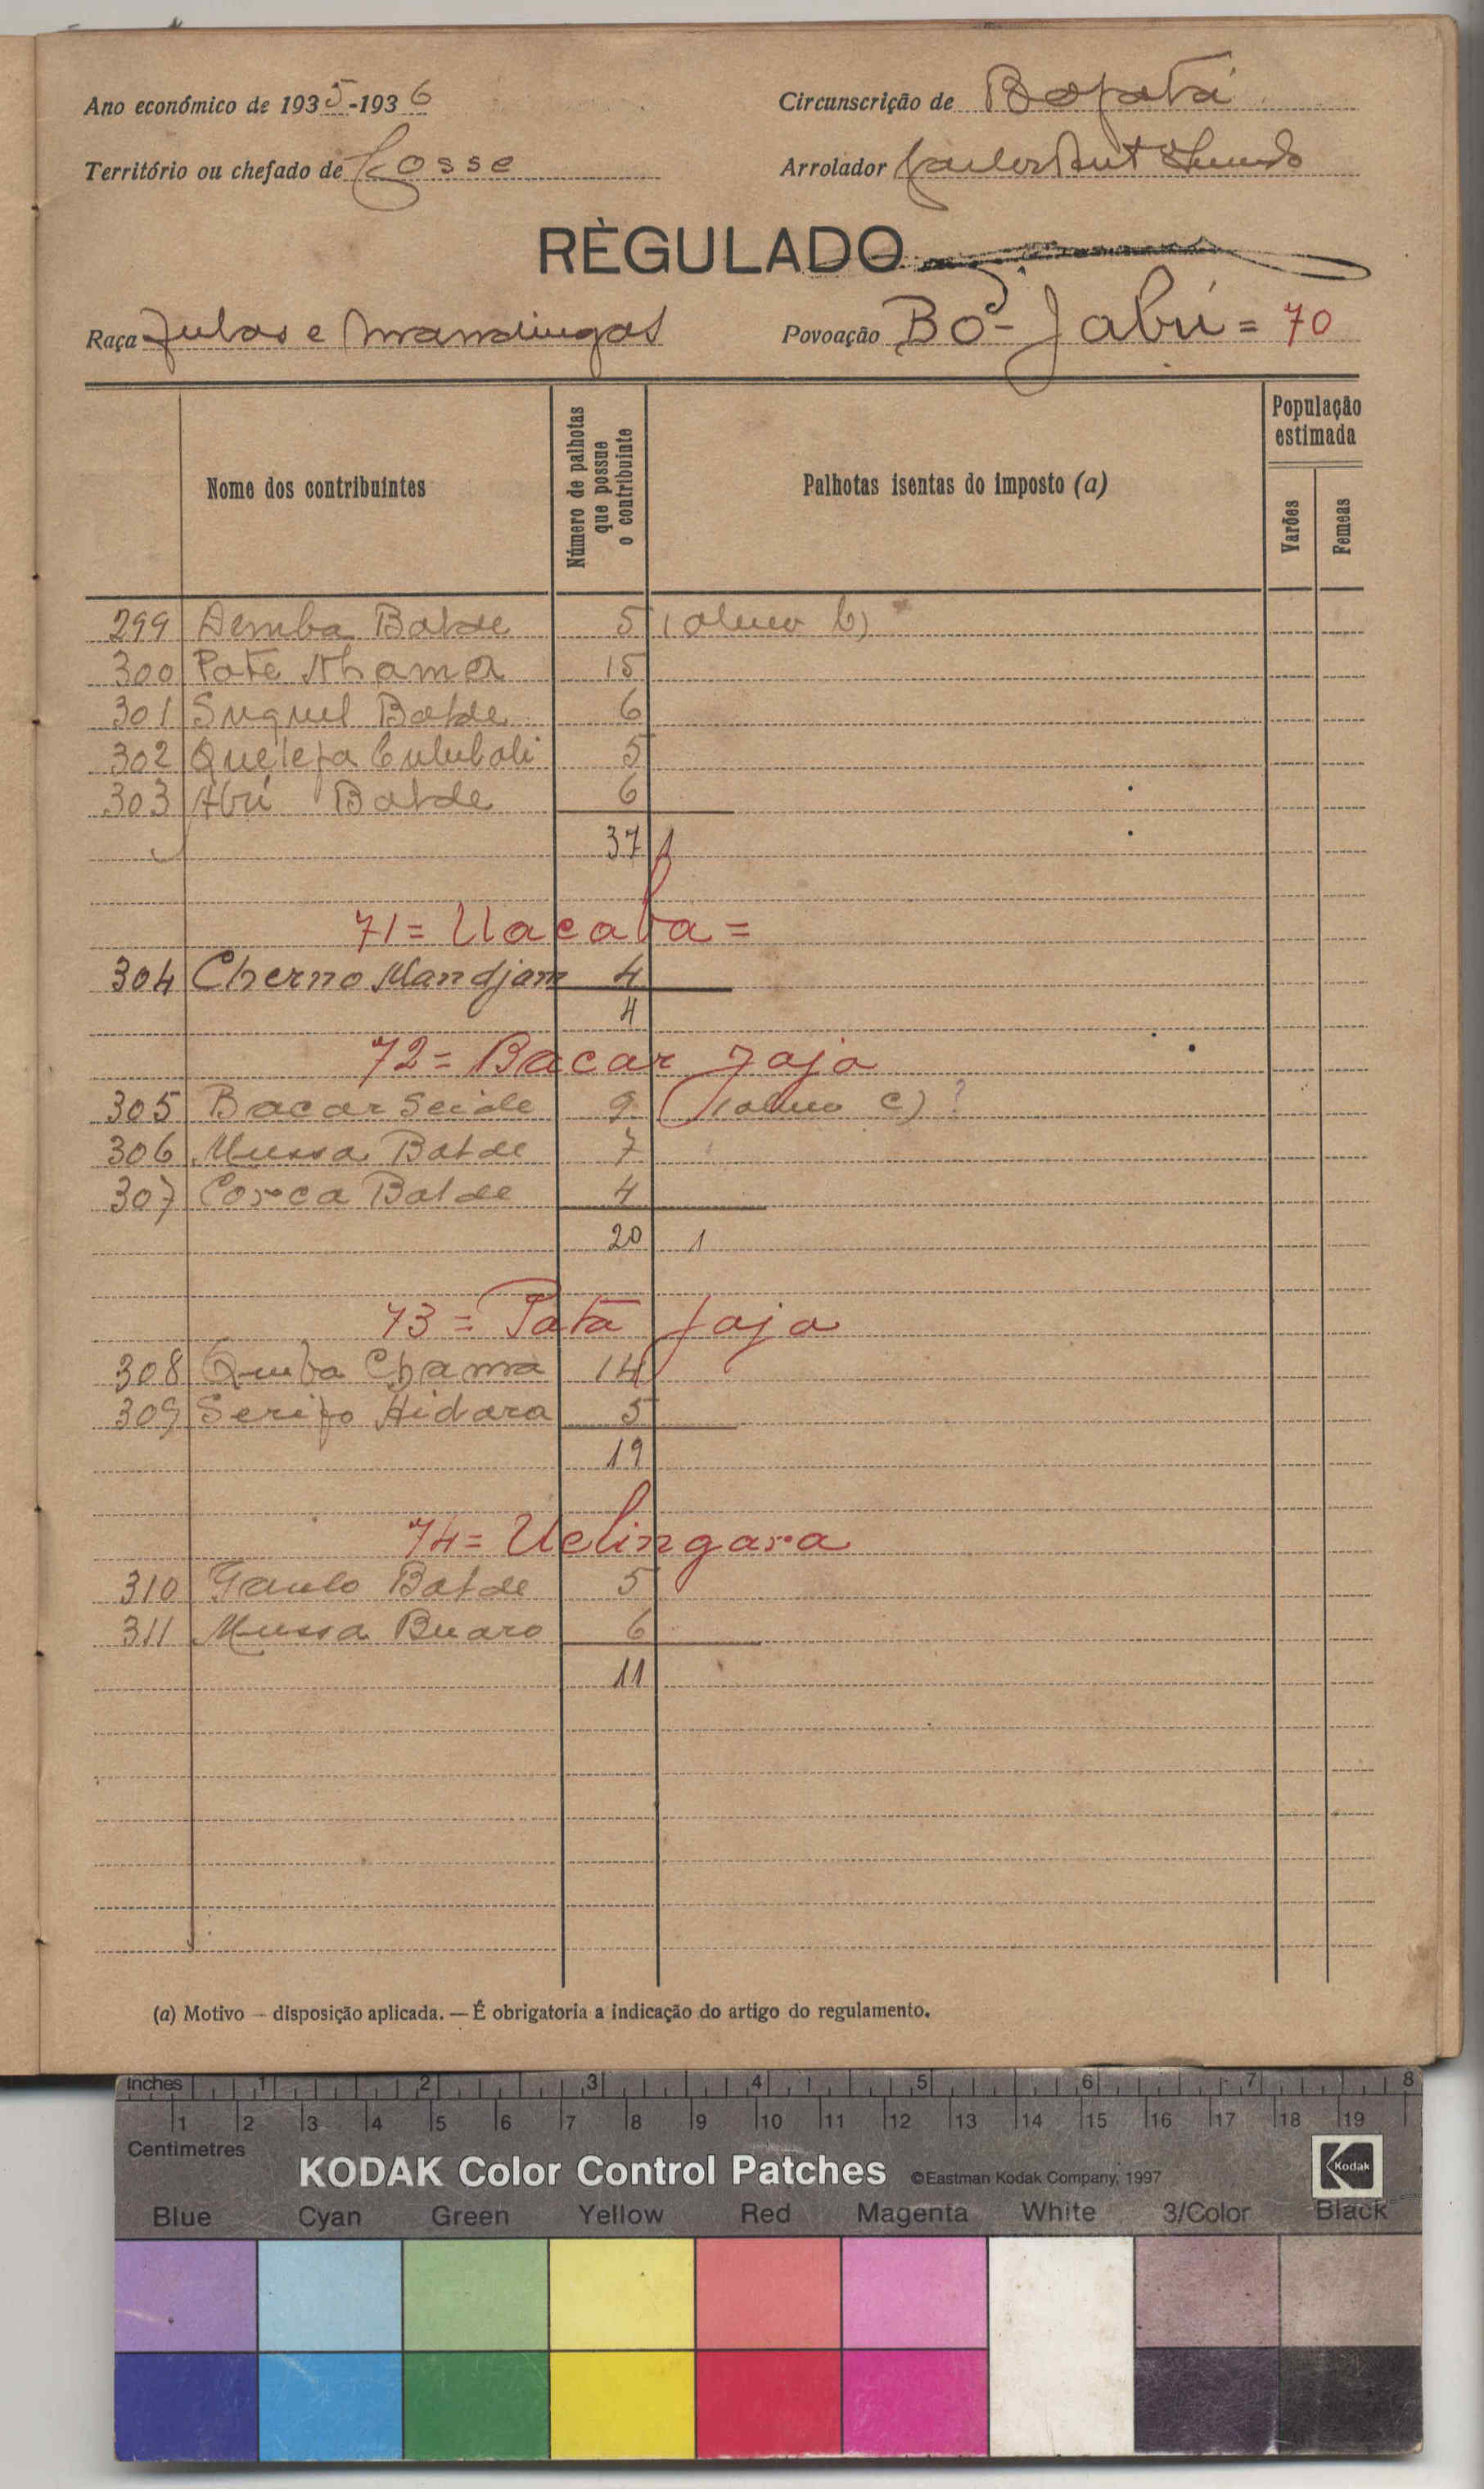 Ano económico de 1935-1936
Circunscrição de Bafatá
Território ou chefado de Cosse
Arrolador
RÈGULADO
Raça Fulas e Mandingas
Povoação Bó-Jabú = 70
Nome dos contribuintes
Número de palhotas que possue o contribuinte
Palhotas isentas do imposto (a)
População estimada
Varões
Femeas
299 Demba Balde 5 1 b)
300 Pate 15
301 Balde 6
302 Quelefa Culubali 5
303 Abú Balde 6
37 1
71 = Uacaba =
304 Cherno Mandjam 4
4
72 = Bacar Jaja
305 Bacar Seide 9 c) ?
306 Mussa Balde 7
307 Corca Balde 4
20 1
73 = Pata Jaja
308 Queba Chama 14
309 Serifo Hidara 5
19
74 = Uelingara
310 Balde 5
311 Mussa Buaro 6
11
(a) Motivo — disposição aplicada. — É obrigatoria a indicação do artigo do regulamento.
Inches 1 2 3 4 5 6 7 8
1 2 3 4 5 6 7 8 9 10 11 12 13 14 15 16 17 18 19
Centimetres
KODAK Color Control Patches ©Eastman Kodak Company, 1997 Kodak
Blue Cyan Green Yellow Red Magenta White 3/Color Black